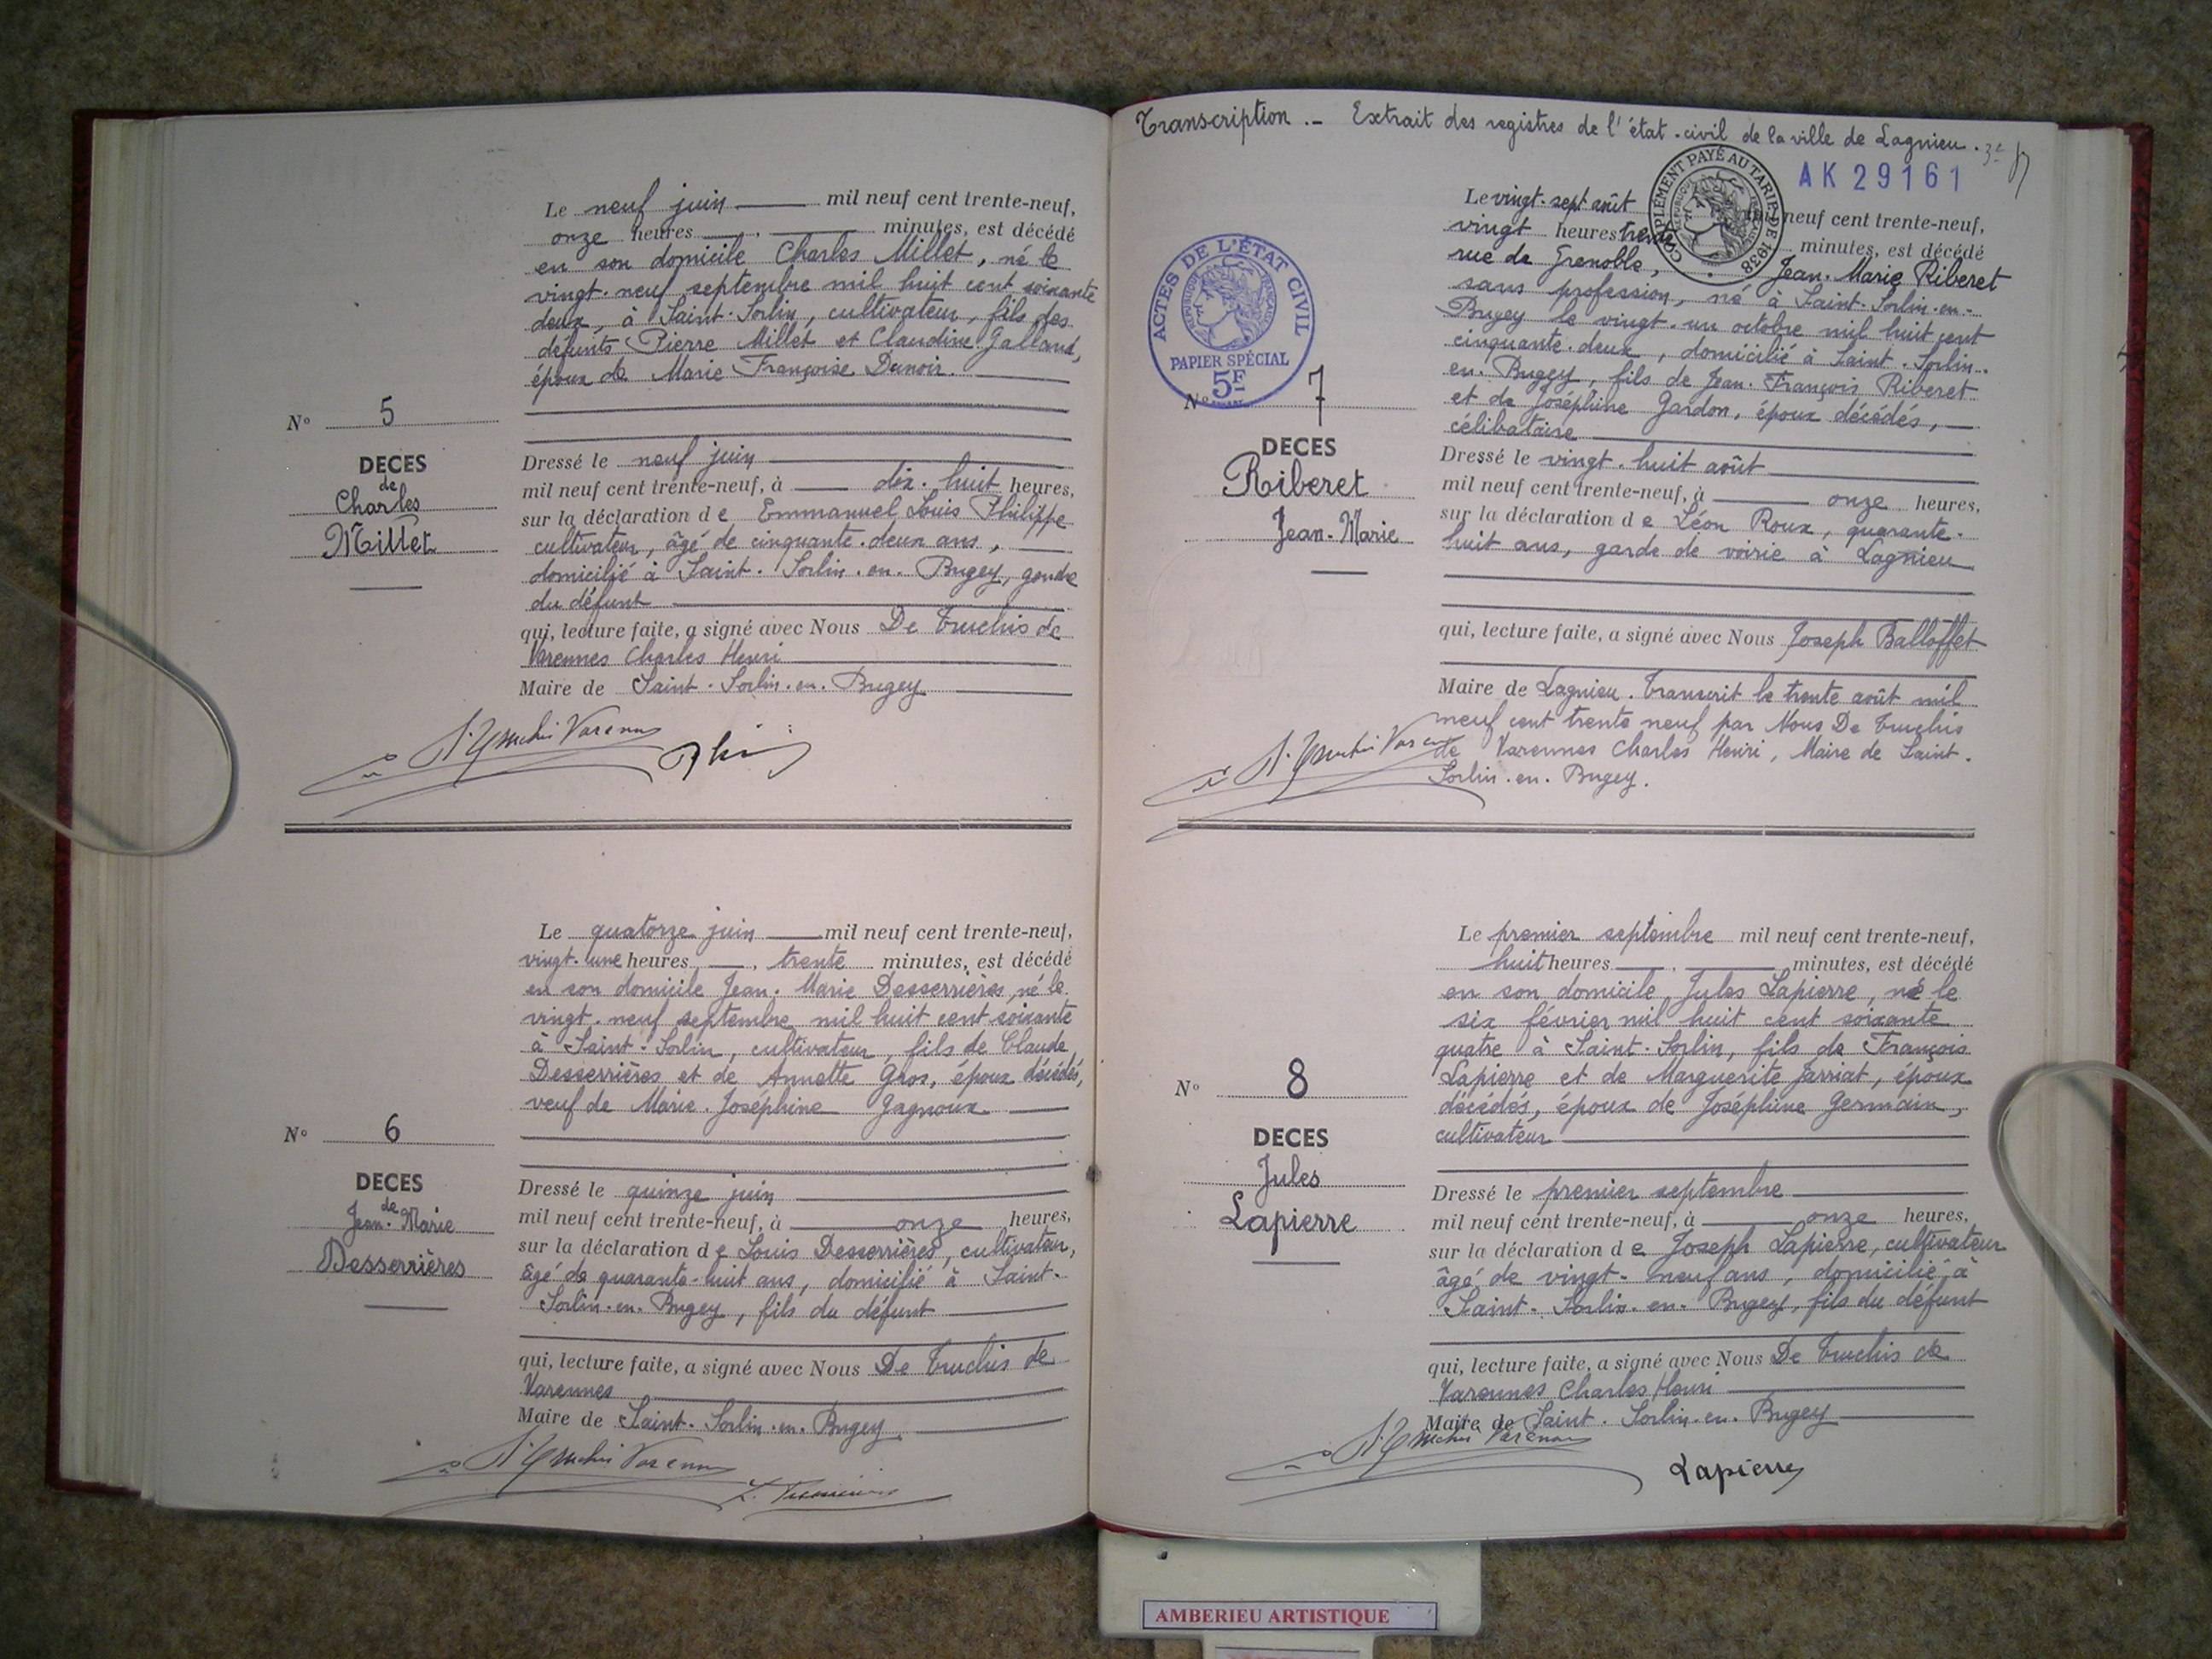 Le neuf juin mil neuf cent trente-neuf,
onze heures minutes, est décédé
en son domicile Charles Millet, né le
vingt-neuf septembre mil huit cent soixante
deux, à Saint-Sorlin, cultivateur, fils des
défunts Pierre Millet et Claudine Galland,
époux de Marie Françoise Danoir.
N° 5
DECES
de
Charles
Millet
Dressé le neuf juin
mil neuf cent trente-neuf, à dix-huit heures,
sur la déclaration de Emmanuel Louis Philippe
cultivateur, âgé de cinquante-deux ans,
domicilié à Saint-Sorlin-en-Bugey, gendre
du défunt
qui, lecture faite, a signé avec Nous De Truchis de
Varennes Charles Henri
Maire de Saint-Sorlin-en-Bugey
Le quatorze juin mil neuf cent trente-neuf,
vingt-une heures, trente minutes, est décédé
en son domicile Jean-Marie Desserrières, né le
vingt-neuf septembre mil huit cent soixante
à Saint-Sorlin, cultivateur, fils de Claude
Desserrières et de Annette Gros, époux décédés,
veuf de Marie-Joséphine Gagnoux
N° 6
DECES
de
Jean-Marie
Desserrières
Dressé le quinze juin
mil neuf cent trente-neuf, à onze heures,
sur la déclaration de Louis Desserrières, cultivateur,
âgé de quarante-huit ans, domicilié à Saint-
Sorlin-en-Bugey, fils du défunt
qui, lecture faite, a signé avec Nous De Truchis de
Varennes
Maire de Saint-Sorlin-en-Bugey
Transcription.- Extrait des registres de l'état-civil de la ville de Lagnieu.
AK 29161
COMPLÉMENT PAYÉ AU TARIF DE 1938
ACTES DE L'ÉTAT CIVIL
RÉPUBLIQUE FRANÇAISE
PAPIER SPÉCIAL
5F
Le vingt-sept août mil neuf cent trente-neuf,
vingt heures trente minutes, est décédé
rue de Grenoble, Jean-Marie Riberet
sans profession, né à Saint-Sorlin-en-
Bugey le vingt-un octobre mil huit cent
cinquante-deux, domicilié à Saint-Sorlin-
en-Bugey, fils de Jean-François Riberet
et de Joséphine Gardon, époux décédés,
célibataire
N° 7
DECES
Riberet
Jean-Marie
Dressé le vingt-huit août
mil neuf cent trente-neuf, à onze heures,
sur la déclaration de Léon Roux, quarante-
huit ans, garde de voirie à Lagnieu
qui, lecture faite, a signé avec Nous Joseph Balloffet
Maire de Lagnieu. Transcrit le trente août mil
neuf cent trente neuf par Nous De Truchis
de Varennes Charles Henri, Maire de Saint-
Sorlin-en-Bugey.
Le premier septembre mil neuf cent trente-neuf,
huit heures minutes, est décédé
en son domicile, Jules Lapierre, né le
six février mil huit cent soixante
quatre à Saint-Sorlin, fils de François
Lapierre et de Marguerite Jarriat, époux
décédés, époux de Joséphine Germain,
cultivateur
N° 8
DECES
Jules
Lapierre
Dressé le premier septembre
mil neuf cent trente-neuf, à onze heures,
sur la déclaration de Joseph Lapierre, cultivateur
âgé de vingt-neuf ans, domicilié à
Saint-Sorlin-en-Bugey, fils du défunt
qui, lecture faite, a signé avec Nous De Truchis de
Varennes Charles Henri
Maire de Saint-Sorlin-en-Bugey
Lapierre
AMBERIEU ARTISTIQUE